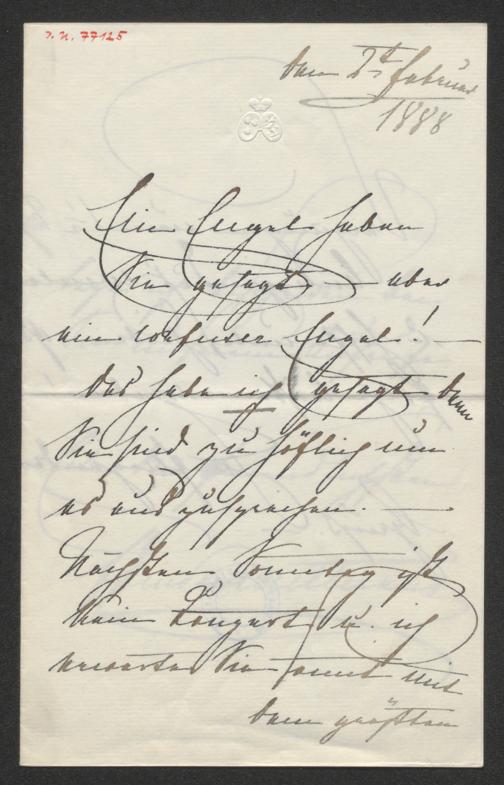 I. N. 77125
den 2t Februar
1888
Ein Engel haben
Sie gesagt – aber
ein confuser Engel! –
das habe ich gesagt denn
Sie sind zu höflich um
es aus zusprechen. –
Nächsten Sonntag ist
kein Konzert u. ich
erwarte Sie somit mit
dem größten